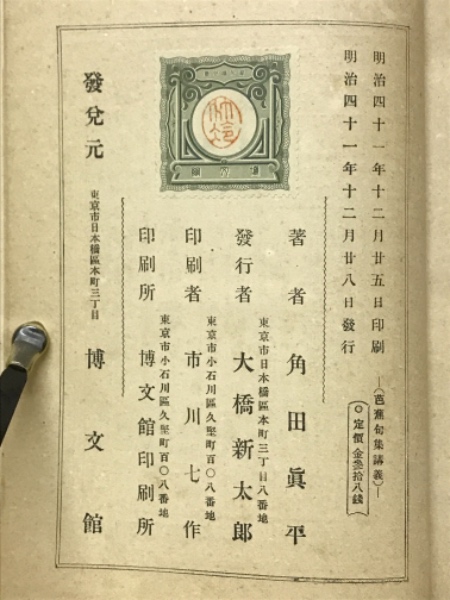 明治四十一年十二月廿五日印刷
明治四十一年十二月廿八日發行
―(芭蕉句集講義)―
◎定價金參拾八錢
著者 角田眞平
東京市日本橋區本町三丁目八番地
發行者 大橋新太郎
東京市小石川區久堅町百〇八番地
印刷者 市川七作
東京市小石川區久堅町百〇八番地
印刷所 博文館印刷所
發兌元 東京市日本橋區本町三丁目 博文館